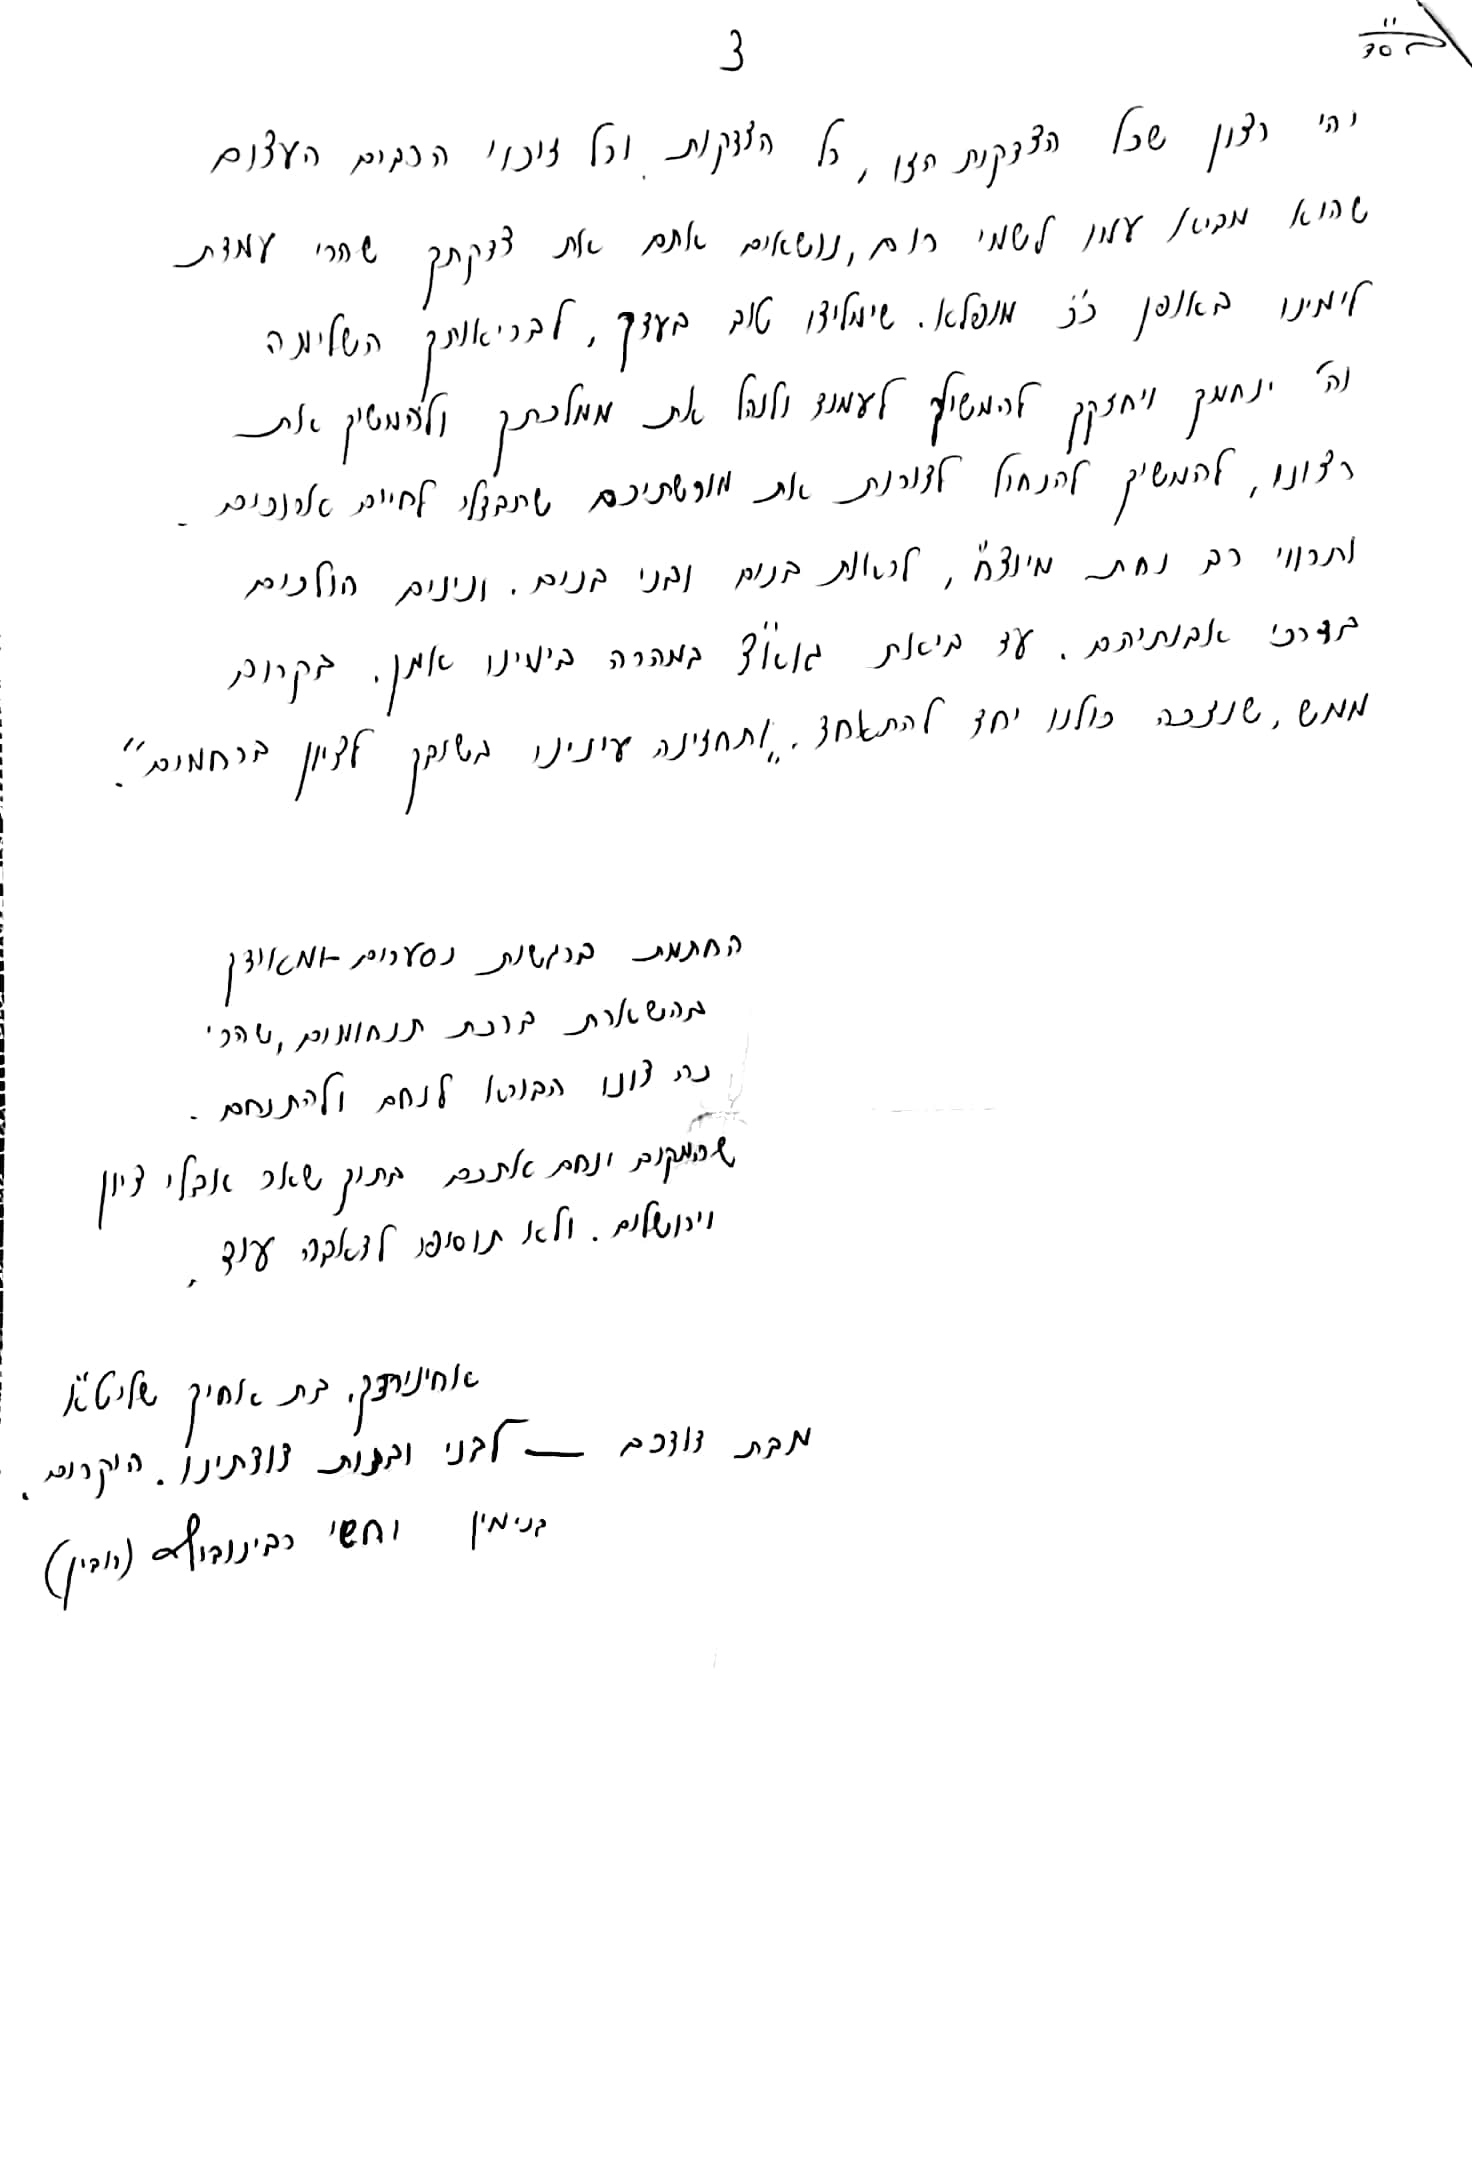 3
בס"ד
יהי רצון שכל הצדקות הזו, כל הצדקות. וכל זיכוי הרבים העצום
שהוא מביא עמו לשמי רום, נושאים אתם את צדקתך שהרי עמדת
לימינו באופן כ"כ מופלא. שימליצו טוב בעדך, לבריאותך השלימה
וה' ינחמך ויחזקך להמשיך לעמוד ולנהל את ממלכתך ולהמשיך את
רצונו, להמשיך להנחיל לדורות את מורשתיכם שתבדלי לחיים ארוכים.
ותרווי רב נחת מיוצ"ח, לראות בנים ובני בנים. ונינים הולכים
בדרכי אבותיהם. עד ביאת גוא"צ במהרה בימינו אמן. בקרוב
ממש, שנזכה כולנו יחד להתאחד. "ותחזינה עינינו בשובך לציון ברחמים".
החתמת ברגשות נסערים
בהשארת ברכת תנחומים, שהרי
כה צונו הבורא לנחם ולהתנחם.
שהמקום ינחם אתכם בתוך שאר אבלי ציון
וירושלים. ולא תוסיפו לדאבה עוד.
אחיינירתך. בת אחיך שליט"א
מבת דודכם — לבני ובנות דודתינו. היקרים.
בנימין וחשי רבינוביץ (רובין)